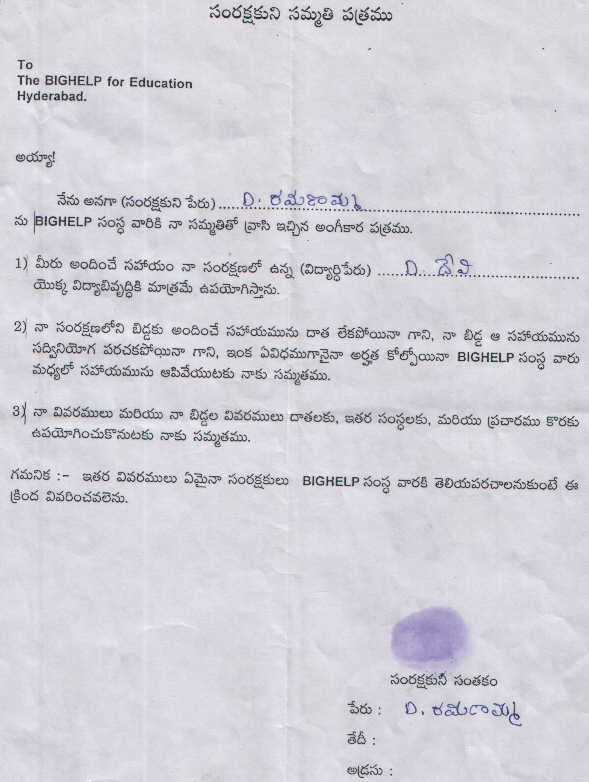 సంరక్షకుని సమ్మతి పత్రము
To
The BIGHELP for Education
Hyderabad.
అయ్యా!
నేను అనగా (సంరక్షకుని పేరు) D. రమణామ్మ
ను BIGHELP సంస్థ వారికి నా సమ్మతితో వ్రాసి ఇచ్చిన అంగీకార పత్రము.
1) మీరు అందించే సహాయం నా సంరక్షణలో ఉన్న (విద్యార్ధిపేరు) D. దేవి
యొక్క విద్యాబివృద్ధికి మాత్రమే ఉపయోగిస్తాను.
2) నా సంరక్షణలోని బిడ్డకు అందించే సహాయమును దాత లేకపోయినా గాని, నా బిడ్డ ఆ సహాయమును
సద్వినియోగ పరచకపోయినా గాని, ఇంక ఏవిధముగానైనా అర్హత కోల్పోయినా BIGHELP సంస్థ వారు
మధ్యలో సహాయమును ఆపివేయుటకు నాకు సమ్మతము.
3) నా వివరములు మరియు నా బిడ్డల వివరములు దాతలకు, ఇతర సంస్థలకు, మరియు ప్రచారము కొరకు
ఉపయోగించుకొనుటకు నాకు సమ్మతము.
గమనిక :- ఇతర వివరములు ఏమైనా సంరక్షకులు BIGHELP సంస్థ వారకి తెలియపరచాలనుకుంటే ఈ
క్రింద వివరించవలెను.
సంరక్షకుని సంతకం
పేరు : D. రమణామ్మ
తేదీ :
అడ్రసు :